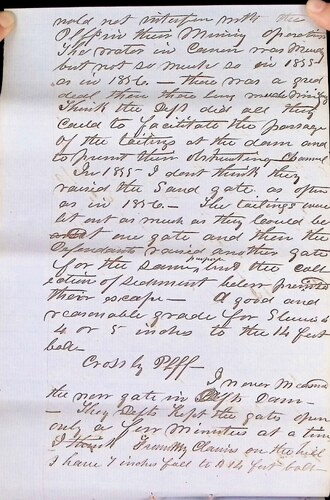 would not interfere with the
Plffs in their mining operations
The water in Canon was muddy
but not so much so in 1855
as in 1856. — there was a good
deal then there being much mining
I think the Defts did all they
could to facilitate the passage
of the tailings at the dam and
to prevent their obstructing Channel
In 1855 I dont think they
raised the Sand gate as often
as in 1856 — The tailings were
let out as much as they could be
at one gate and then the
Defendants raised another gate
for the same purpose but the coll
ection of sediment below prevented
their escape — A good and
reasonable grade for Sluices is
4 or 5 inches to the 14 feet
box —
Cross by Plff —
I never measured
the new gate in Defts Dam —
— They Defts kept the gate open
only a few minutes at a time
I think From my Claims on the hill
I have 7 inches fall to a 14 feet box —